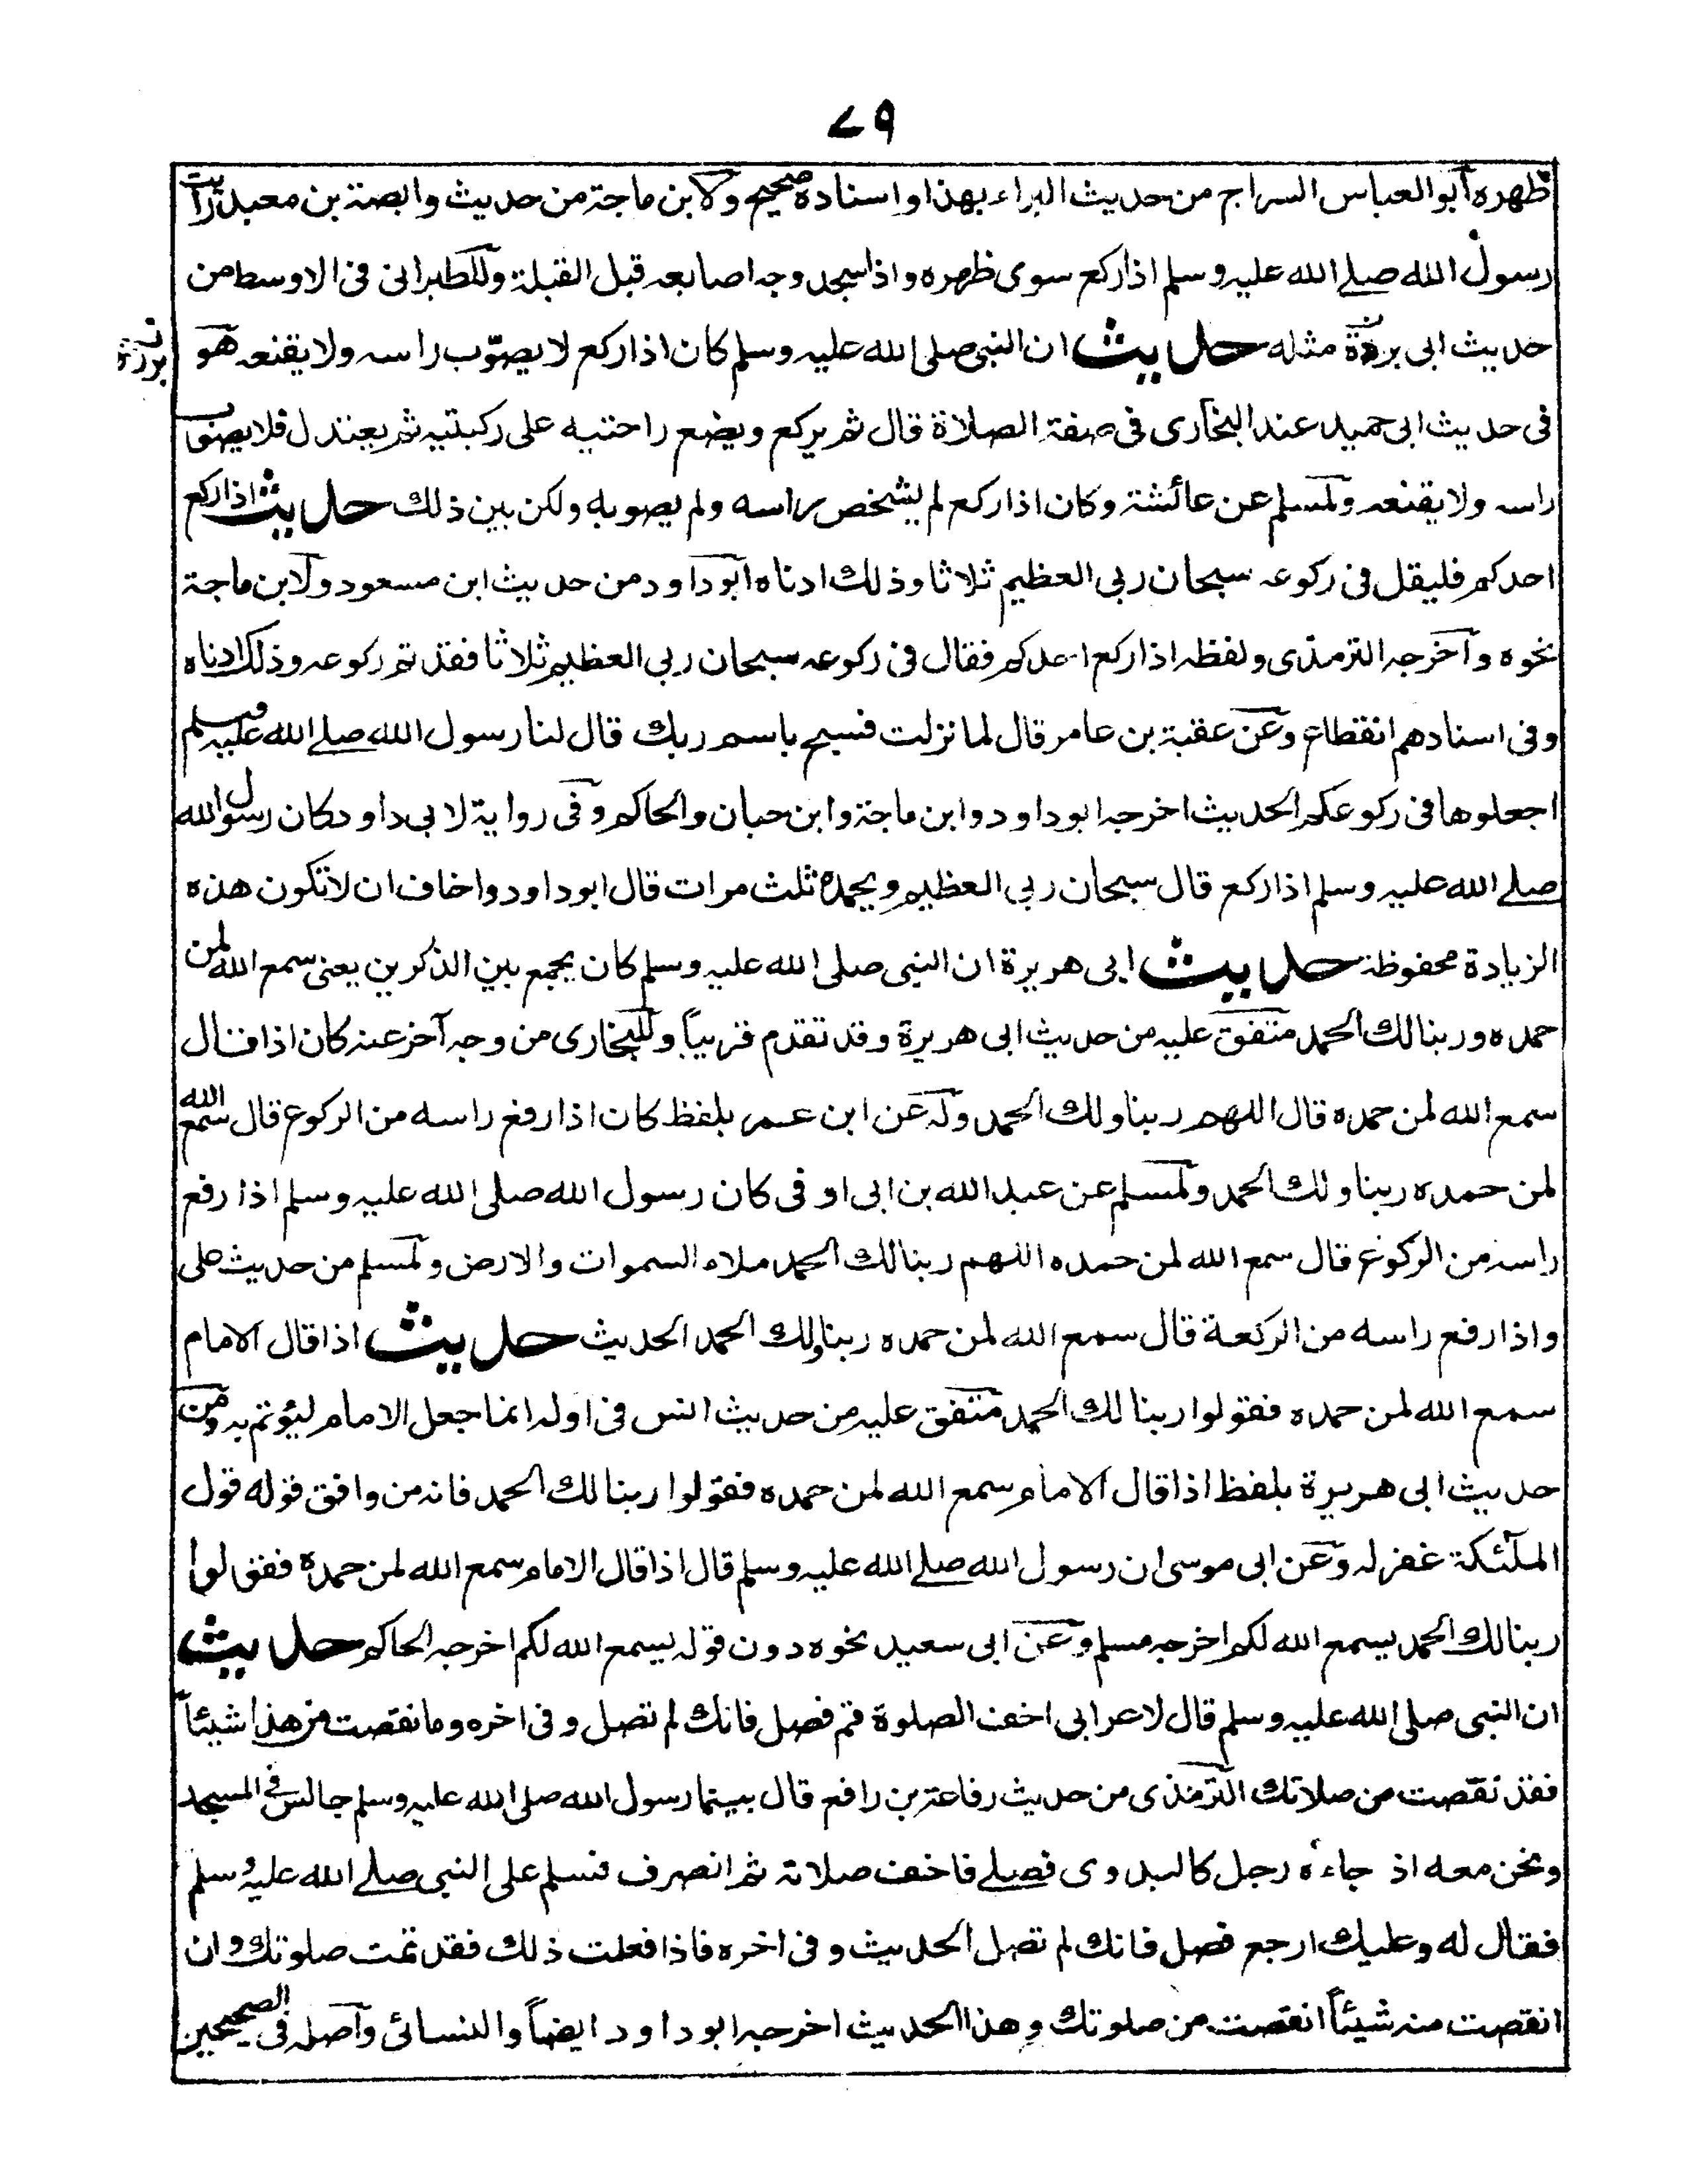 ٧٩
ظهره أبو العباس السراج من حديث البراء بهذا واسناده صحيح ولابن ماجة من حديث وابصة بن معبد رأيت
رسول الله صلى الله عليه وسلم اذا ركع سوى ظهره واذا سجد وجه اصابعه قبل القبلة وللطبرانى فى الاوسط من
حديث ابى بردة مثله حديث ان النبى صلى الله عليه وسلم كان اذا ركع لا يصوّب راسه ولا يقنعه هو
فى حديث ابى حميد عند البخارى فى صفة الصلاة قال ثم يركع ويضع راحتيه على ركبتيه ثم يعتدل فلا يصوب
راسه ولا يقنعه ولمسلم عن عائشة وكان اذا ركع لم يشخص راسه ولم يصوبه ولكن بين ذلك حديث اذا ركع
احدكم فليقل فى ركوعه سبحان ربى العظيم ثلاثا وذلك ادناه ابو داود من حديث ابن مسعود ولابن ماجة
نحوه وآخرجه الترمذى ولفظه اذا ركع احدكم فقال فى ركوعه سبحان ربى العظيم ثلاثا فقد تم ركوعه وذلك ادناه
وفى اسنادهم انقطاع وعن عقبة بن عامر قال لما نزلت فسبح باسم ربك قال لنا رسول الله صلى الله عليه وسلم
اجعلوها فى ركوعكم الحديث اخرجه ابو داود وابن ماجة وابن حبان والحاكم وفى رواية لابى داود كان رسول الله
صلى الله عليه وسلم اذا ركع قال سبحان ربى العظيم وبحمده ثلث مرات قال ابو داود واخاف ان لا تكون هذه
الزيادة محفوظة حديث ابى هريرة ان النبى صلى الله عليه وسلم كان يجمع بين الذكرين يعنى سمع الله لمن
حمده وربنا لك الحمد متفق عليه من حديث ابى هريرة وقد تقدم قريباً وللبخارى من وجه آخر عنه كان اذا قال
سمع الله لمن حمده قال اللهم ربنا ولك الحمد وله عن ابن عمر بلفظ كان اذا رفع راسه من الركوع قال سمع الله
لمن حمده ربنا ولك الحمد ولمسلم عن عبد الله بن ابى اوفى كان رسول الله صلى الله عليه وسلم اذا رفع
راسه من الركوع قال سمع الله لمن حمده اللهم ربنا لك الحمد ملاء السموات والارض ولمسلم من حديث على
واذا رفع راسه من الركعة قال سمع الله لمن حمده ربنا ولك الحمد الحديث حديث اذا قال الامام
سمع الله لمن حمده فقولوا ربنا لك الحمد متفق عليه من حديث انس فى اوله انما جعل الامام ليؤتم به ومن
حديث ابى هريرة بلفظ اذا قال الامام سمع الله لمن حمده فقولوا ربنا لك الحمد فانه من وافق قوله قول
الملٓئكة غفر له وعن ابى موسى ان رسول الله صلى الله عليه وسلم قال اذا قال الامام سمع الله لمن حمده فقولوا
ربنا لك الحمد يسمع الله لكم اخرجه مسلم وعن ابى سعيد نحوه دون قوله يسمع الله لكم اخرجه الحاكم حديث
ان النبى صلى الله عليه وسلم قال لاعرابى اخف الصلوة قم فصل فانك لم تصل وفى اخره وما نقصت من هذا شيئاً
فقد نقصت من صلاتك الترمذى من حديث رفاعة بن رافع قال بينما رسول الله صلى الله عليه وسلم جالس فى المسجد
ونحن معه اذ جاءه رجل كالبدوى فصلى فاخف صلاته ثم انصرف فسلم على النبى صلى الله عليه وسلم
فقال له وعليك ارجع فصل فانك لم تصل الحديث وفى اخره فاذا فعلت ذلك فقد تمت صلوتك وان
انقصت منه شيئاً انقصت من صلوتك وهذا الحديث اخرجه ابو داود ايضاً والنسائى وآصله فى الصحيحين